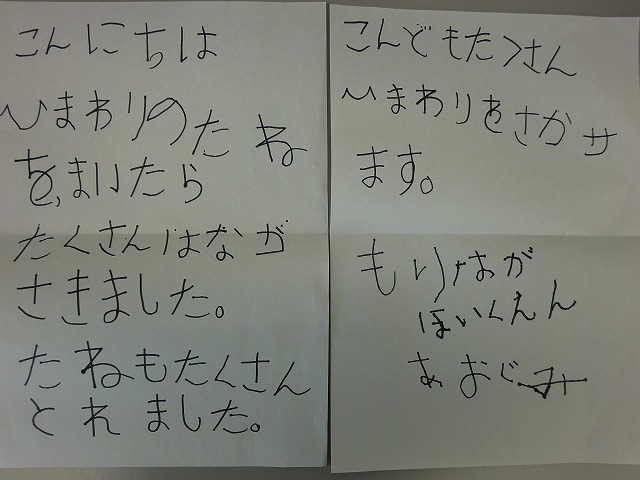 こんにちは
ひまわりのたね
を、まいたら
たくさんはなが
さきました。
たねもたくさん
とれました。
こんどもたくさん
ひまわりをさかせ
ます。
もりなが
ほいくえん
あおぐみ